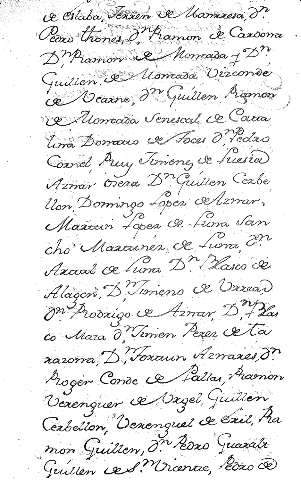 de estaba, Ferren de Manresa, Dn
Pedro thones, Dn Ramon de Cardona
Dn Ramon de Moncada y Dn
Guillen de Moncada Vizconde
de Vearne, Dn Guillen Ramon
de Moncada Senescal de Cata
luna de Foces Dn Pedro
Cornel Ruy Ximenez de Luesia
Aznar Dn Guillen Cerbe
llon, Domingo Lopez de Aznar,
Martin Lopez de Luna San
cho Martinez de Luna, Dn
Artal de Luna Dn Blasco de
Alagon, Dn Ximeno de Urrea,
Dn Rodrigo de Aznar, Dn Blas
co Maza Dn Ximen Perez de Ta
razona, Dn Aznares, Dn
Roger Conde de Pallas, Ramon
Verenguer de Urgel, Guillen
Cerbellon, Verenguel de Eril, Ra
mon Guillen, Dn Pedro
Guillen de Sn Pedro de